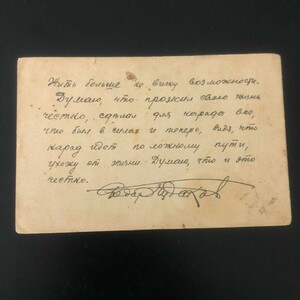 Жить больше не вижу возможности.
Думаю, что прожил свою жизнь
честно, сделал для народа все,
что был в силах и теперь, видя, что
народ идет по ложному пути,
ухожу от жизни. Думаю, что и это
честно.